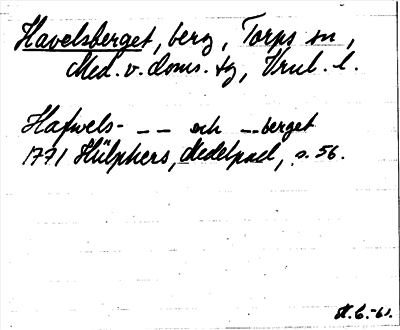 Havelsberget, berg, Torps sn,
Med. v. doms. tg, Vrnl. l.
Hafwels- – – och – berget
1771 Hülphers, Medelpad, s. 56.